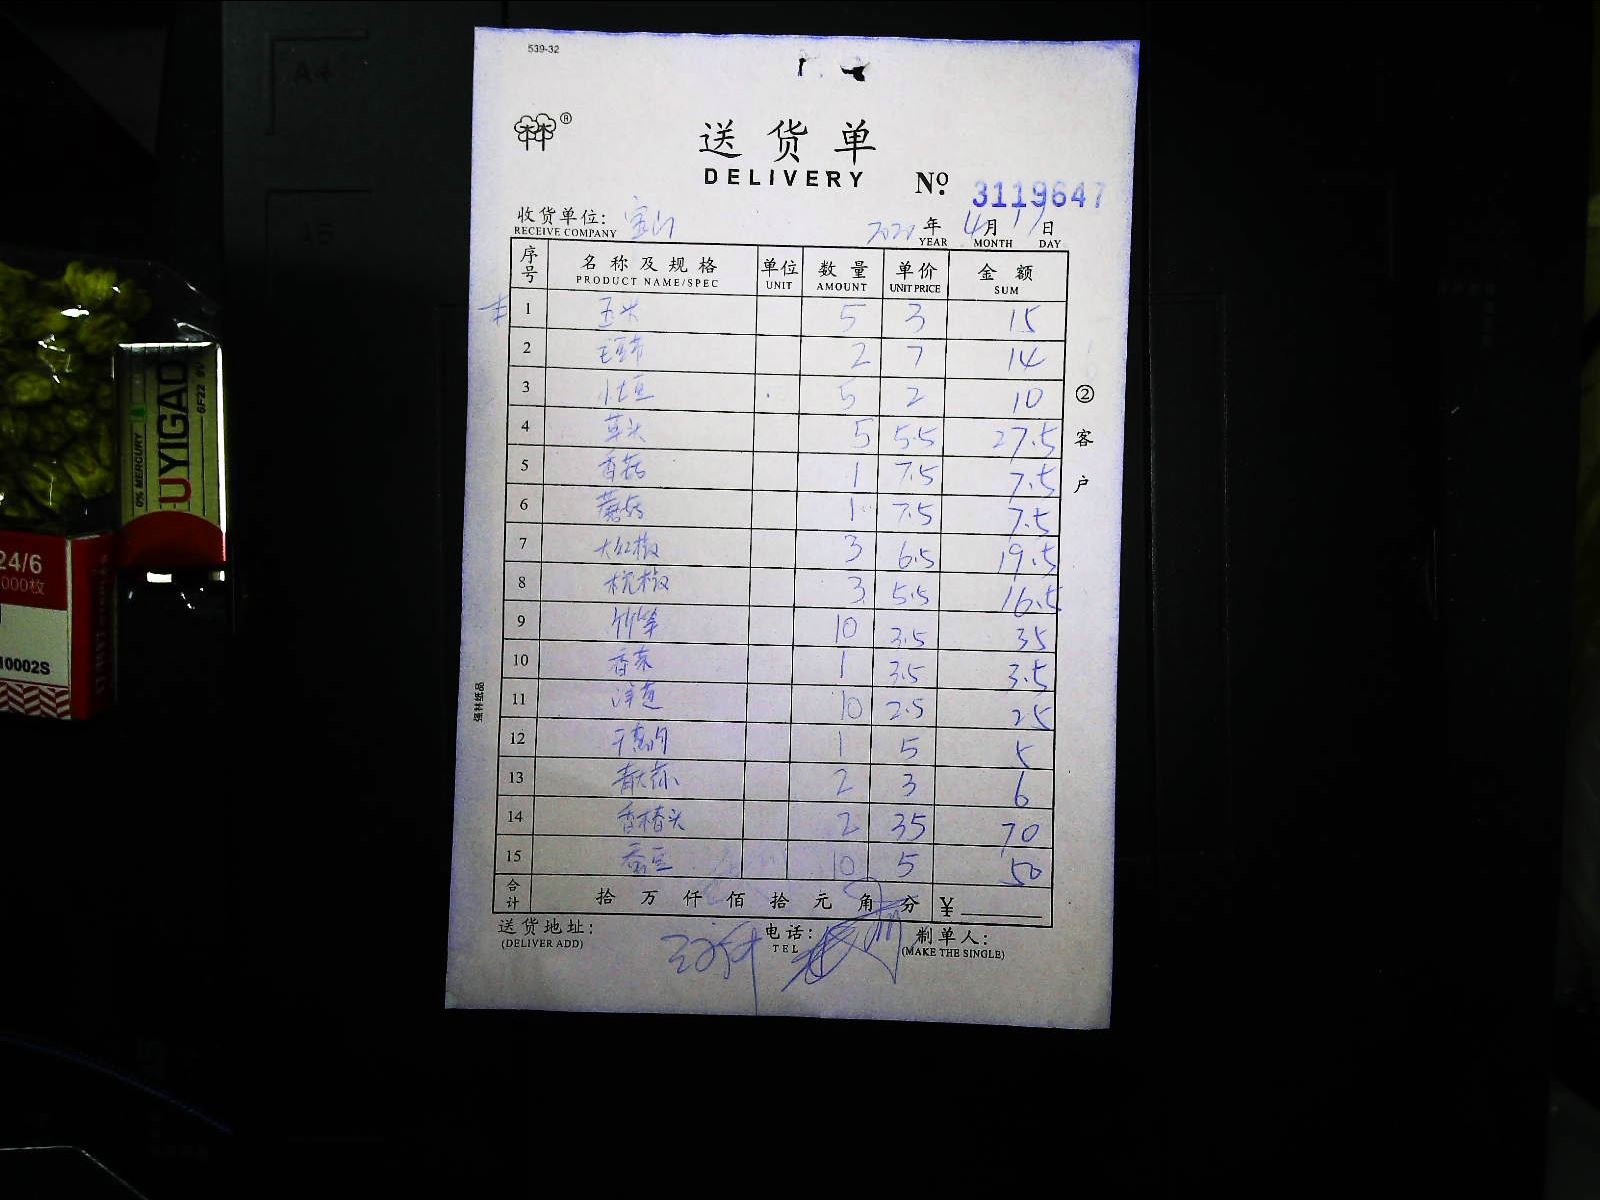 539-32
送货单
DELIVERY
No. 3119647
收货单位: 宝山
RECEIVE COMPANY
年 4月 17日
YEAR MONTH DAY
序号 名称及规格 单位 数量 单价 金额
PRODUCT NAME/SPEC UNIT AMOUNT UNIT PRICE SUM
1 玉米 5 3 15
2 2 7 14
3 土豆 5 2 10
4 草头 5 5.5 27.5
5 香菇 1 7.5 7.5
6 蘑菇 1 7.5 7.5
7 大红椒 3 6.5 19.5
8 杭椒 3 5.5 16.5
9 竹笋 10 3.5 35
10 香菜 1 3.5 3.5
11 洋葱 10 2.5 25
12 1 5 5
13 2 3 6
14 香椿头 2 35 70
15 蚕豆 10 5 50
合计 拾 万 仟 佰 拾 元 角 分 ¥
送货地址: 电话: 制单人:
(DELIVER ADD) TEL (MAKE THE SINGLE)
②客户
强林纸品
A4
0% MERCURY
6F22 9V
UYIGAO
24/6
000枚
10002S